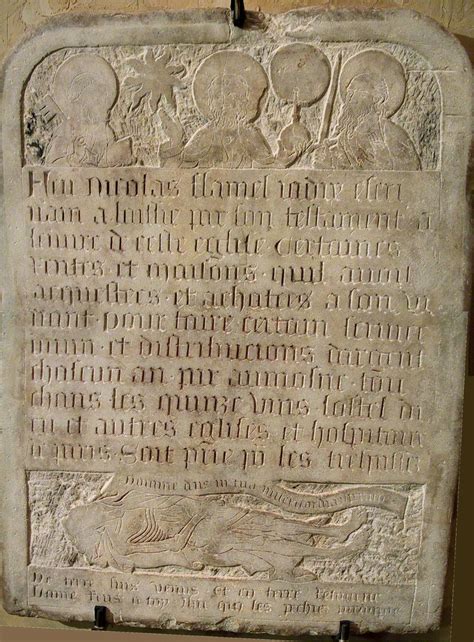 Feu nicolas flamel iadis escri
uain a laissie par son testament a
leuure de ceste eglise certaines
rentes et maisons quil auoit
acquestees et achatees a son vi
uant pour faire certain seruice
diuin et distribucions dargent
chascun an par aumosne touch
ans les quinze vins lostel di
eu et autres eglises et hospitaux
a paris Soit prie pour les trespasses
Domine deus in tua misericordia speraui
De terre suis venus et en terre retourne
Lame rens a toy ihu qui les pechies pardonne